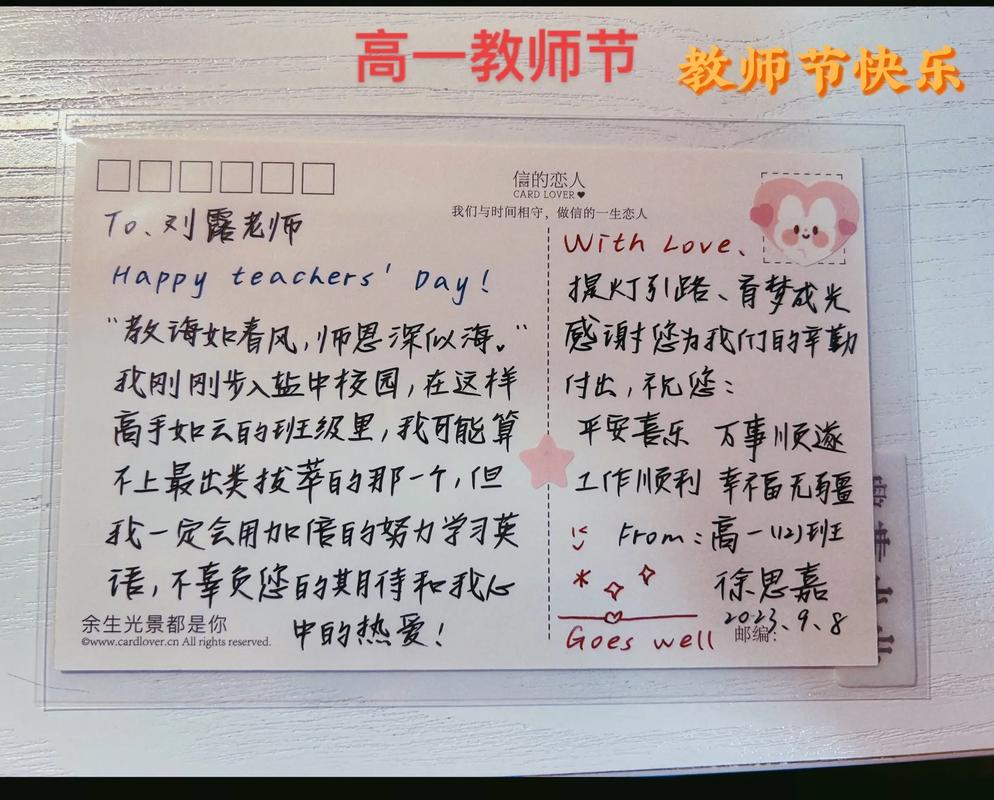 高一教师节
教师节快乐
信的恋人
CARD LOVER♥
我们与时间相守，做信的一生恋人
To、刘露老师
Happy teachers' Day!
“教诲如春风，师恩深似海。”
我刚刚步入盐中校园，在这样
高手如云的班级里，我可能算
不上最出类拔萃的那一个，但
我一定会用加倍的努力学习英
语，不辜负您的期待和我心
中的热爱！
余生光景都是你
©www.cardlover.cn All rights reserved.
With Love、
提灯引路、育梦成光
感谢您为我们的辛勤
付出，祝您：
平安喜乐 万事顺遂
工作顺利 幸福无疆
From：高一(12)班
徐思嘉
2023.9.8
邮编：
Goes well